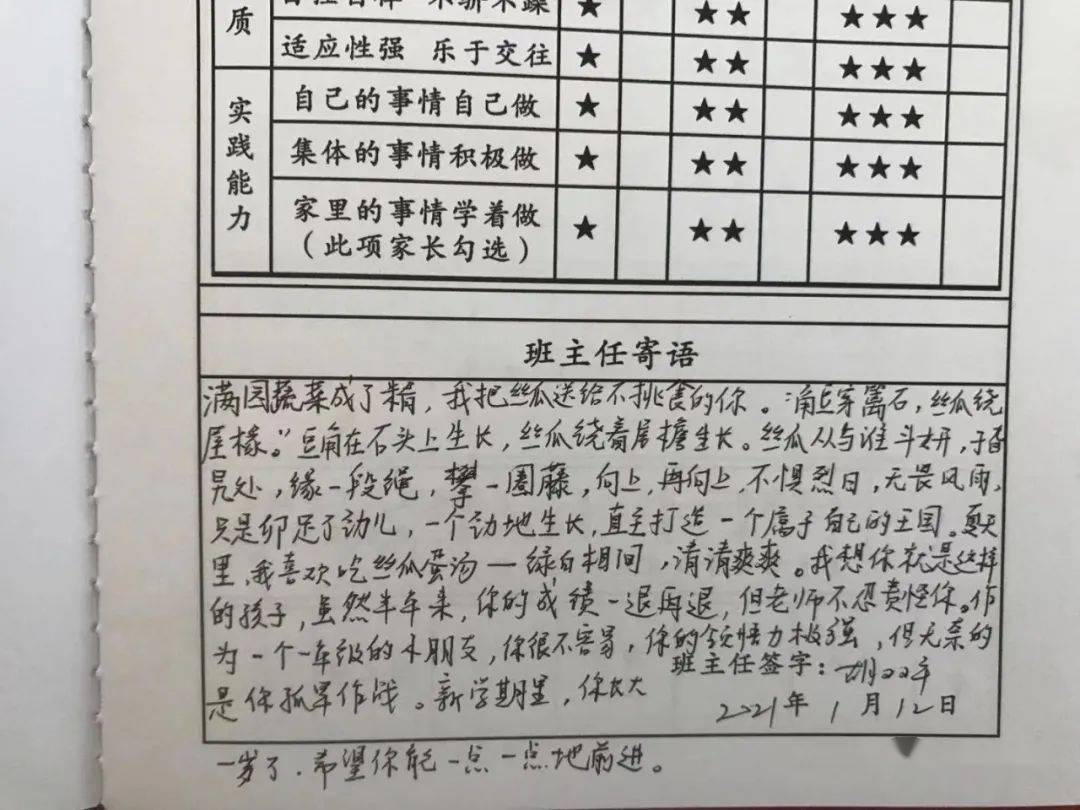 质
★ ★★ ★★★
适应性强 乐于交往 ★ ★★ ★★★
实践能力
自己的事情自己做 ★ ★★ ★★★
集体的事情积极做 ★ ★★ ★★★
家里的事情学着做 ★ ★★ ★★★
(此项家长勾选)
班主任寄语
满园蔬菜成了精,我把丝瓜送给不挑食的你。“角豆穿篱石,丝瓜绕
屋椽。”豆角在石头上生长,丝瓜绕着屋檐生长。丝瓜从与谁斗妍,于
处,缘一段绳,攀一圈藤,向上,再向上,不惧烈日,无畏风雨,
只是卯足了劲儿,一个劲地生长,直至打造一个属于自己的王国。夏天
里,我喜欢吃丝瓜蛋汤——绿白相间,清清爽爽。我想你就是这样
的孩子,虽然半年来,你的成绩一退再退,但老师不忍责怪你。作
为一个一年级的小朋友,你很不容易,你的领悟力极强,但无奈的
班主任签字:胡
是你孤军作战。新学期里,你长大
2021年1月12日
一岁了.希望你能一点一点地前进。